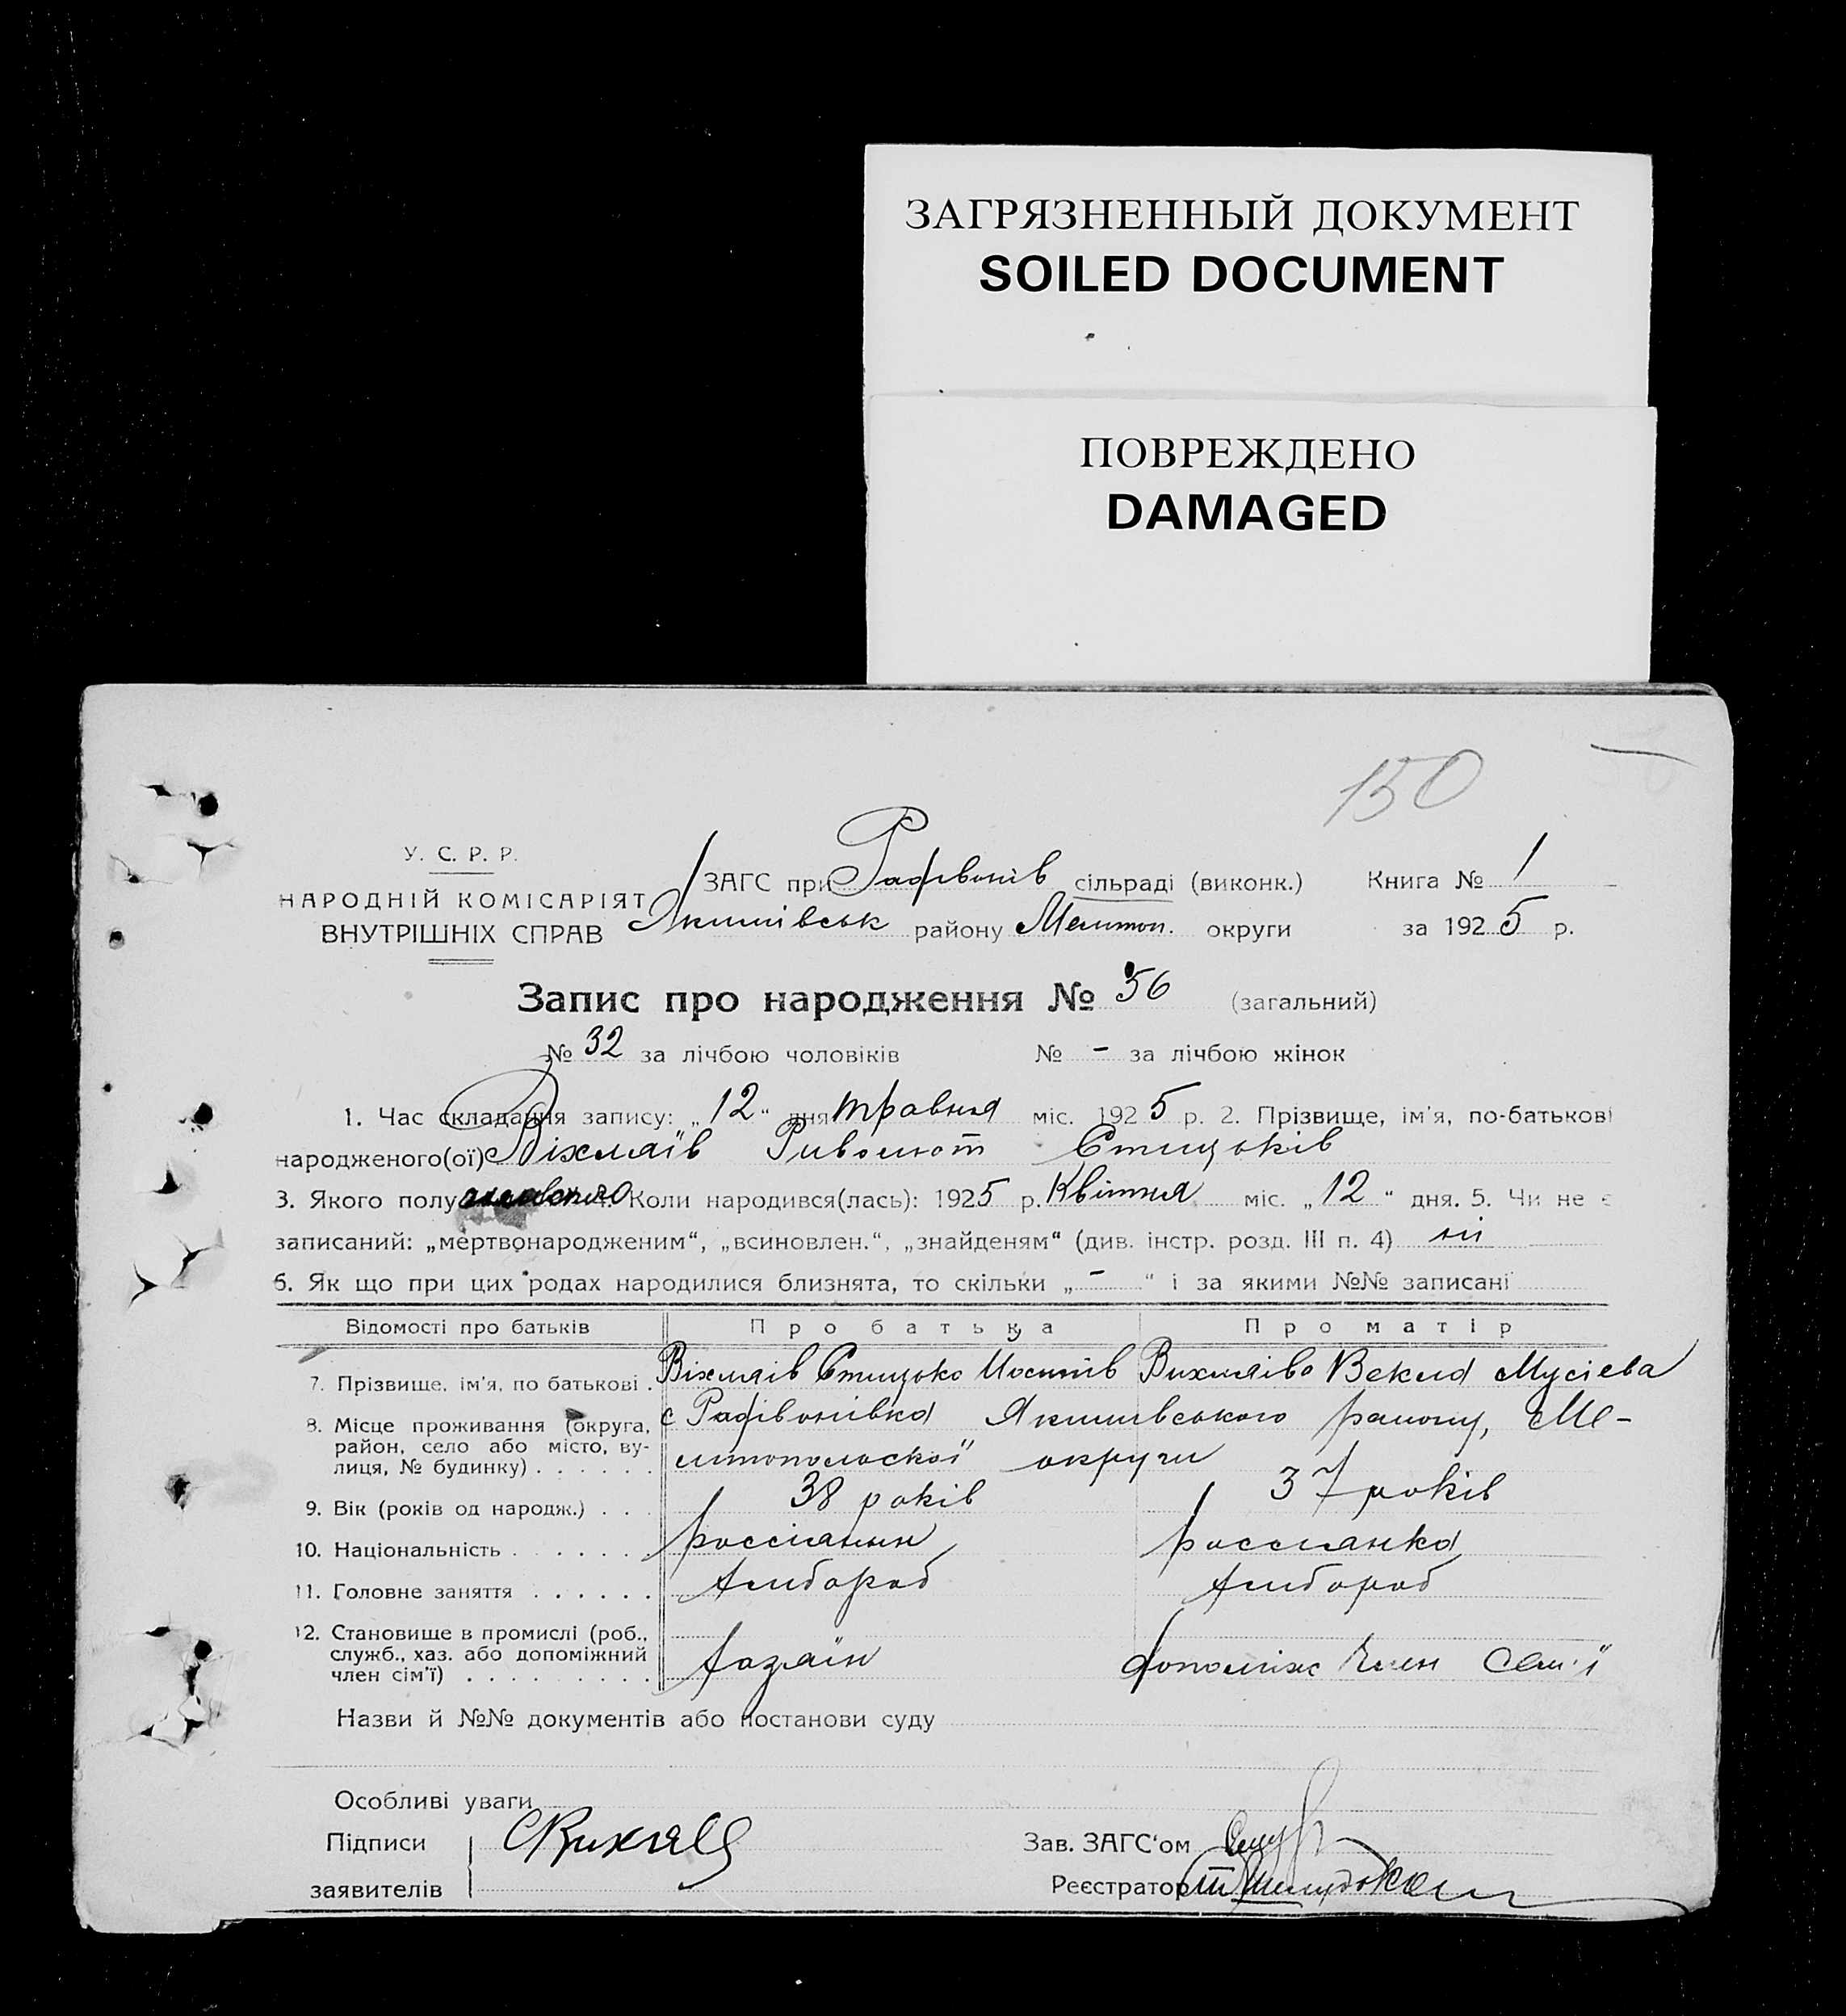 ЗАГРЯЗНЕННЫЙ ДОКУМЕНТ
SOILED DOCUMENT
ПОВРЕЖДЕНО
DAMAGED
150
У. С. Р. Р.
НАРОДНІЙ КОМІСАРІЯТ
ВНУТРІШНІХ СПРАВ
ЗАГС при Радівонів сільраді (виконк.) Книга № 1
Якимівськ району Мелітоп. округи за 1925 р.
Запис про народження № 56 (загальний)
№ 32 за лічбою чоловіків № - за лічбою жінок
1. Час складання запису: „12“ дня травня міс. 1925 р. 2. Прізвище, ім'я, по-батькові
народженого(ої) Віхляїв
3. Якого полу Коли народився(лась): 1925 р. Квітня міс. „12“ дня. 5. Чи не є
записаний: „мертвонародженим“, „всиновлен.“, „знайденям“ (див. інстр. розд. III п. 4) ні
6. Як що при цих родах народилися близнята, то скільки „-“ і за якими №№ записані
Відомості про батьків Про батька Про матір
7. Прізвище, ім'я, по батькові . Віхляів Осипів Вихляіва Векла Мусіева
8. Місце проживання (округа, с Радівонівка Якимівського району, Ме-
район, село або місто, ву-
лиця, № будинку) . . . . . . літопольскої округи
9. Вік (років од народж.) . . . 38 років 37 років
10. Національність . . . . . . россіанин россианка
11. Головне заняття . . . . . . хлибороб хлибороб
12. Становище в промислі (роб.,
служб., хаз. або допоміжний хазяїн допоміж член сем'ї
член сім'ї) . . . . . . . . .
Назви й №№ документів або постанови суду
Особливі уваги
Підписи
заявителів
Зав. ЗАГС'ом
Реєстратор